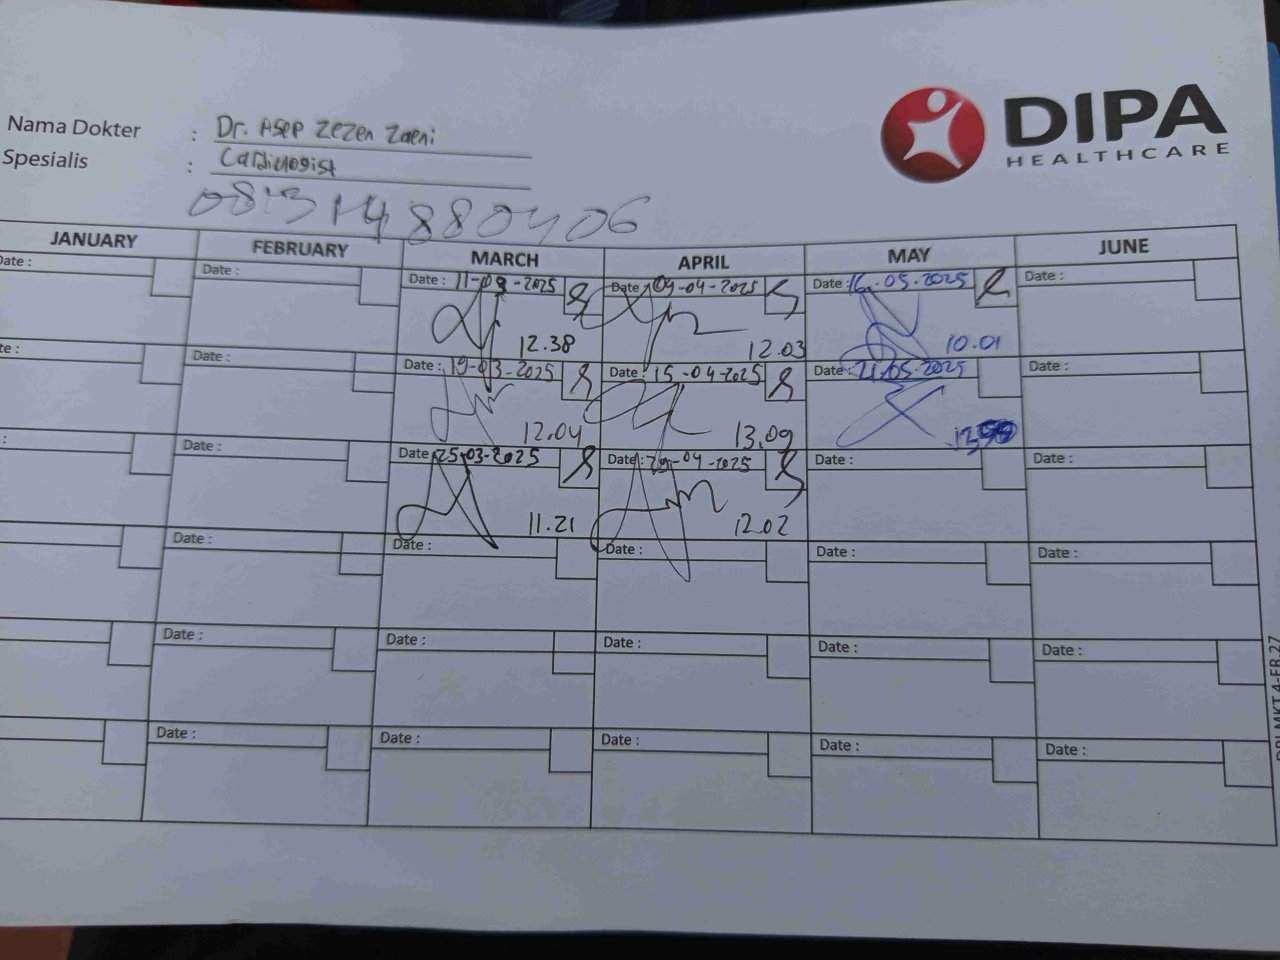 DIPA
HEALTHCARE
Nama Dokter : Dr. Asep Zezen Zaeni
Spesialis : Cardiologist
JANUARY FEBRUARY MARCH APRIL MAY JUNE
Date : Date : Date : 11-03-2025 Date : 09-04-2025 Date : 16-05-2025 Date :
12.38 12.03 10.01
te : Date : Date : 19-03-2025 Date : 15-04-2025 Date : 21-05-2025 Date :
12.04 13.09
: Date : Date : 25-03-2025 Date : 29-04-2025 Date : Date :
11.21 12.02
Date : Date : Date : Date : Date :
Date : Date : Date : Date : Date :
Date : Date : Date : Date : Date :